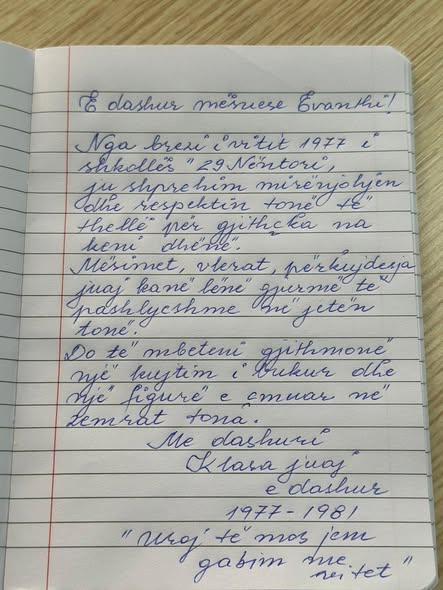 E dashur mësuese Evanthi!
Nga brezi i vitit 1977 i
shkollës "29 Nëntori,
ju shprehim mirënjohjen
dhe respektin tonë të
thellë për gjithçka na
keni dhënë.
Mësimet, vlerat, përkujdesja
juaj kanë lënë gjurmë të
pashlyeshme në jetën
tonë.
Do të mbeteni gjithmonë
një kujtim i bukur dhe
një figurë e çmuar në
zemrat tona.
Me dashuri
Klasa juaj
e dashur
1977-1981
"Uroj të mos jem
gabim me
vitet"